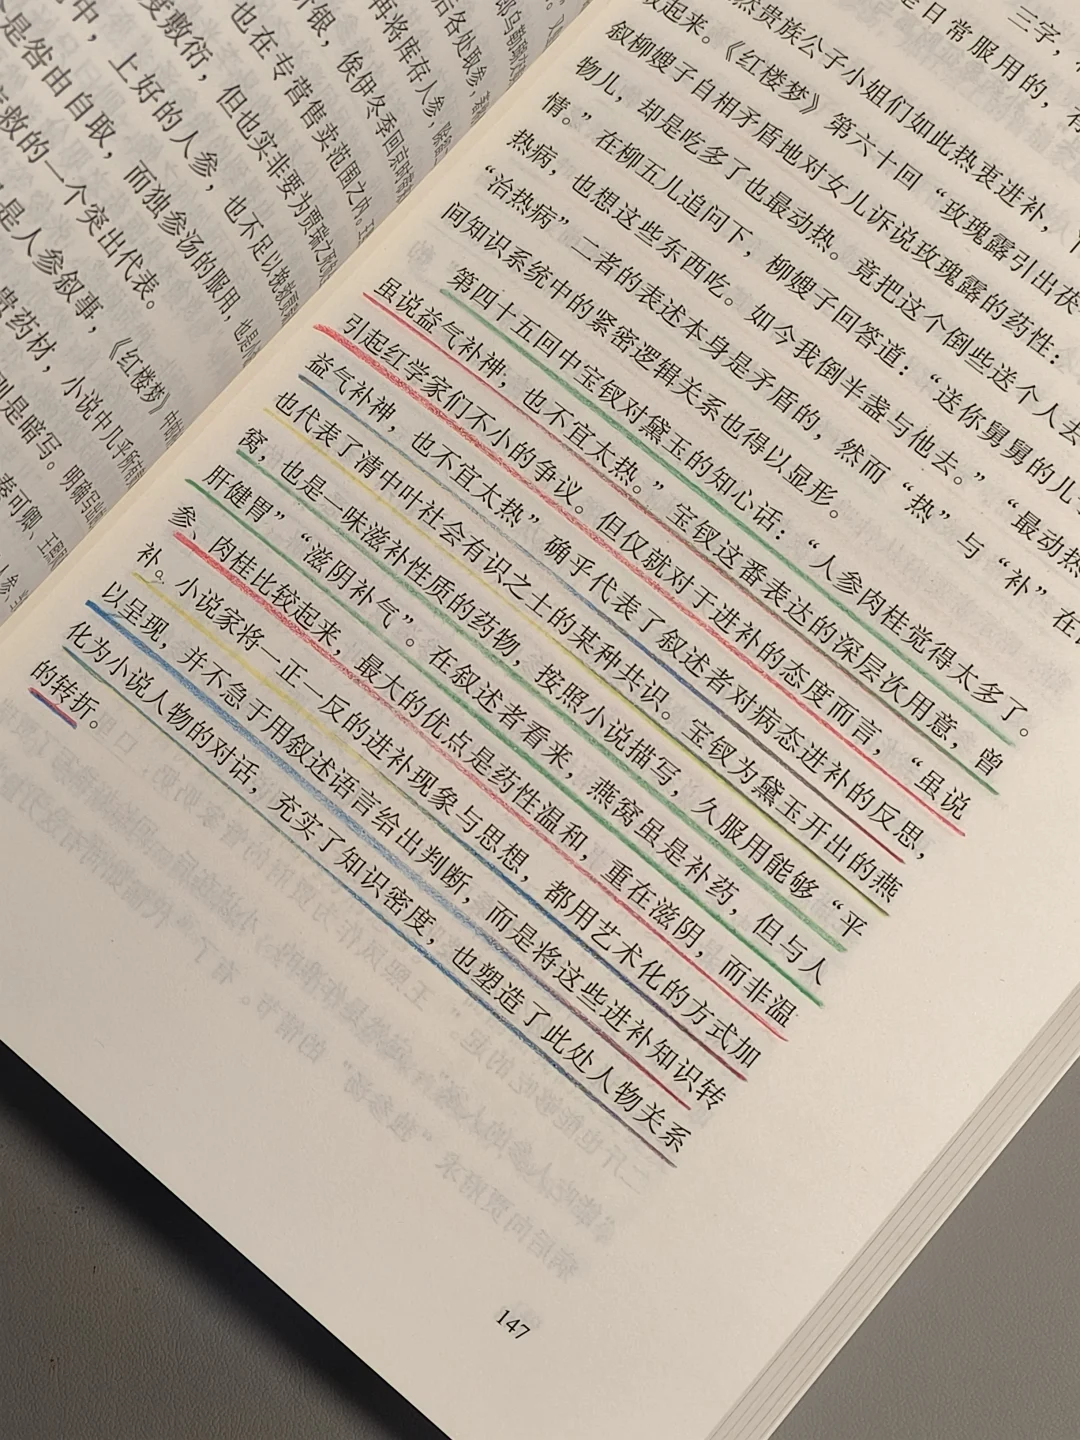 中,上好的人参,也不足以挽救
是咎由自取,而独参汤的服用,也是
救的一个突出代表。
是人参叙事,《红楼梦》中
贵药材,小说中几乎所有
则是暗写。明确写
秦可卿、王
度敷衍,但也实非要为贾瑞之
也在专营售卖范围之内。
折银,俟伊冬季回京
再将库存人参,
后各处取参,
三字,
是日常服用的,
然贵族公子小姐们如此热衷进补,
起来。《红楼梦》第六十回“玫瑰露引出茯
叙柳嫂子自相矛盾地对女儿诉说玫瑰露的药性:
物儿,却是吃多了也最动热。竟把这个倒些送个人去
情。”在柳五儿追问下,柳嫂子回答道:“送你舅舅的儿
热病,也想这些东西吃。如今我倒半盏与他去。”“最动热
“治热病”二者的表述本身是矛盾的,然而“热”与“补”在
间知识系统中的紧密逻辑关系也得以显形。
第四十五回中宝钗对黛玉的知心话:“人参肉桂觉得太多了。
虽说益气补神,也不宜太热。”宝钗这番表达的深层次用意,曾
引起红学家们不小的争议。但仅就对于进补的态度而言,“虽说
益气补神,也不宜太热”确乎代表了叙述者对病态进补的反思,
也代表了清中叶社会有识之士的某种共识。宝钗为黛玉开出的燕
窝,也是一味滋补性质的药物,按照小说描写,久服用能够“平
肝健胃”“滋阴补气”。在叙述者看来,燕窝虽是补药,但与人
参、肉桂比较起来,最大的优点是药性温和,重在滋阴,而非温
补。小说家将一正一反的进补现象与思想,都用艺术化的方式加
以呈现,并不急于用叙述语言给出判断,而是将这些进补知识转
化为小说人物的对话,充实了知识密度,也塑造了此处人物关系
的转折。
147